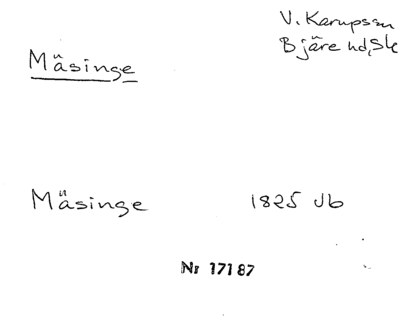 V. Karupssn
Mäsinge
Bjäre hd, Sk
Mäsinge 1825 Jb
Nr 17187